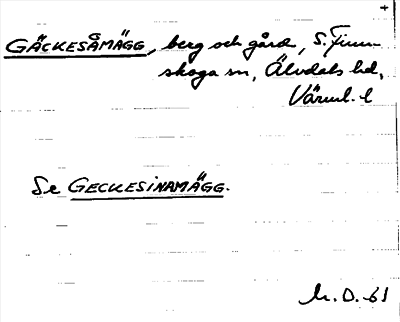 +
GÄCKESÅMÄGG, berg och gård, S. Finn-
skoga sn, Älvdals hd,
Värml. l
Se GECKESINAMÄGG.
M. D. 61